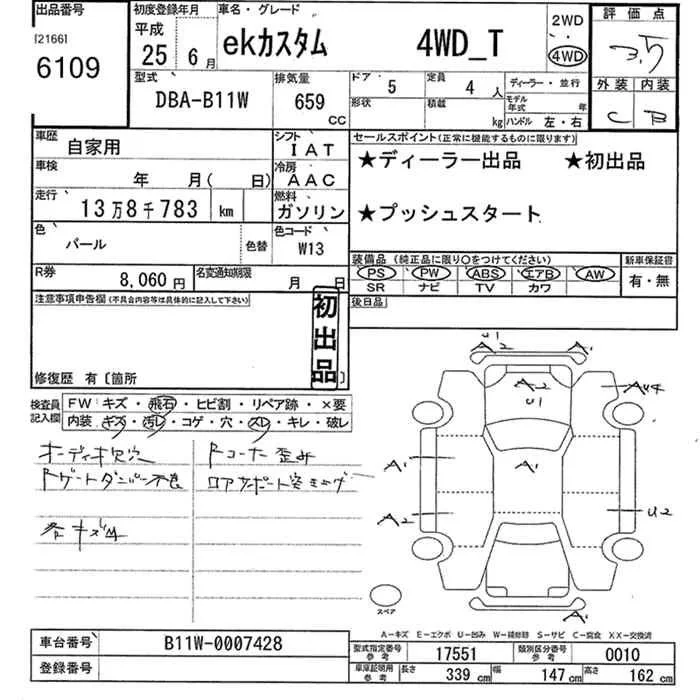 出品番号
[2166]
6109
初度登録年月
平成
25 6月
車名・グレード
ekカスタム 4WD_T
2WD
4WD
評価点
3.5
外装 内装
C B
型式
DBA-B11W
排気量
659
cc
ドア 5
定員 4 人
ディーラー・並行
形状
積載 kg
モデル年式 年
ハンドル 左・右
車歴
自家用
シフト
IAT
車検
年 月( 日)
冷房
AAC
走行
13万8千783 km
燃料
ガソリン
色
パール
色替
色コード
W13
R券
8,060円
名変通知期限
月 日
セールスポイント(正常に機能するものに限ります)
★ディーラー出品 ★初出品
★プッシュスタート
装備品(純正品に限り○をつけてください)
PS PW ABS エアB AW
SR ナビ TV カワ
新車保証書
有・無
後日品
注意事項申告欄(不具合内容等は具体的に記入して下さい)
初出品
修復歴 有〔箇所 〕
検査員記入欄
FW:キズ・飛石・ヒビ割・リペア跡・×要
内装:キズ・汚レ・コゲ・穴・スレ・キレ・破レ
オーディオ欠穴
Rコーナー歪み
Rゲートダンパー不良
ロアサポート突き上げ
各キズ凹
U1
A2 A1
A2
U1
A4
A1 A1
A2 U2
A1
スペア
A-キズ E-エクボ U-凹み W-補修跡 S-サビ C-腐食 XX-交換済
車台番号
B11W-0007428
登録番号
型式指定番号
参考
17551
類別区分番号
参考
0010
車庫証明用
参考
長さ 339 cm 幅 147 cm 高さ 162 cm